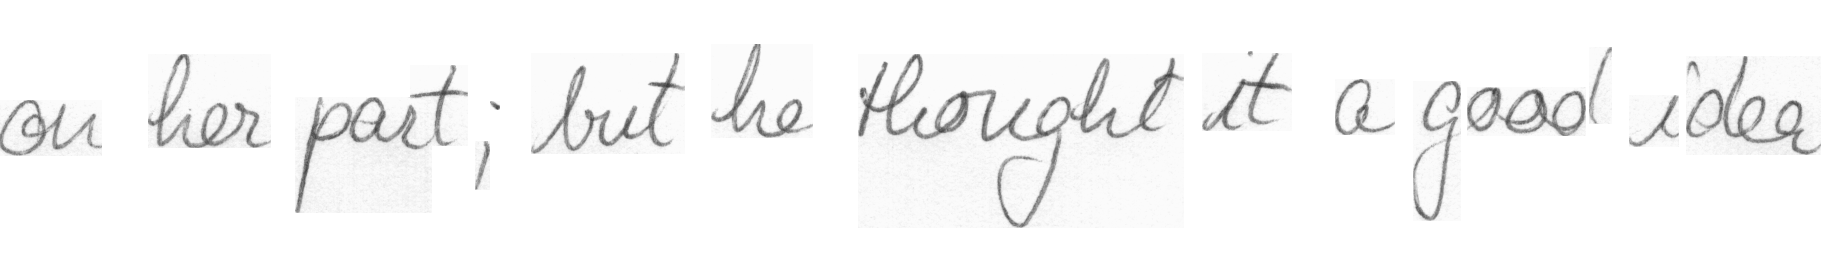 on her part; but he thought it a good idea